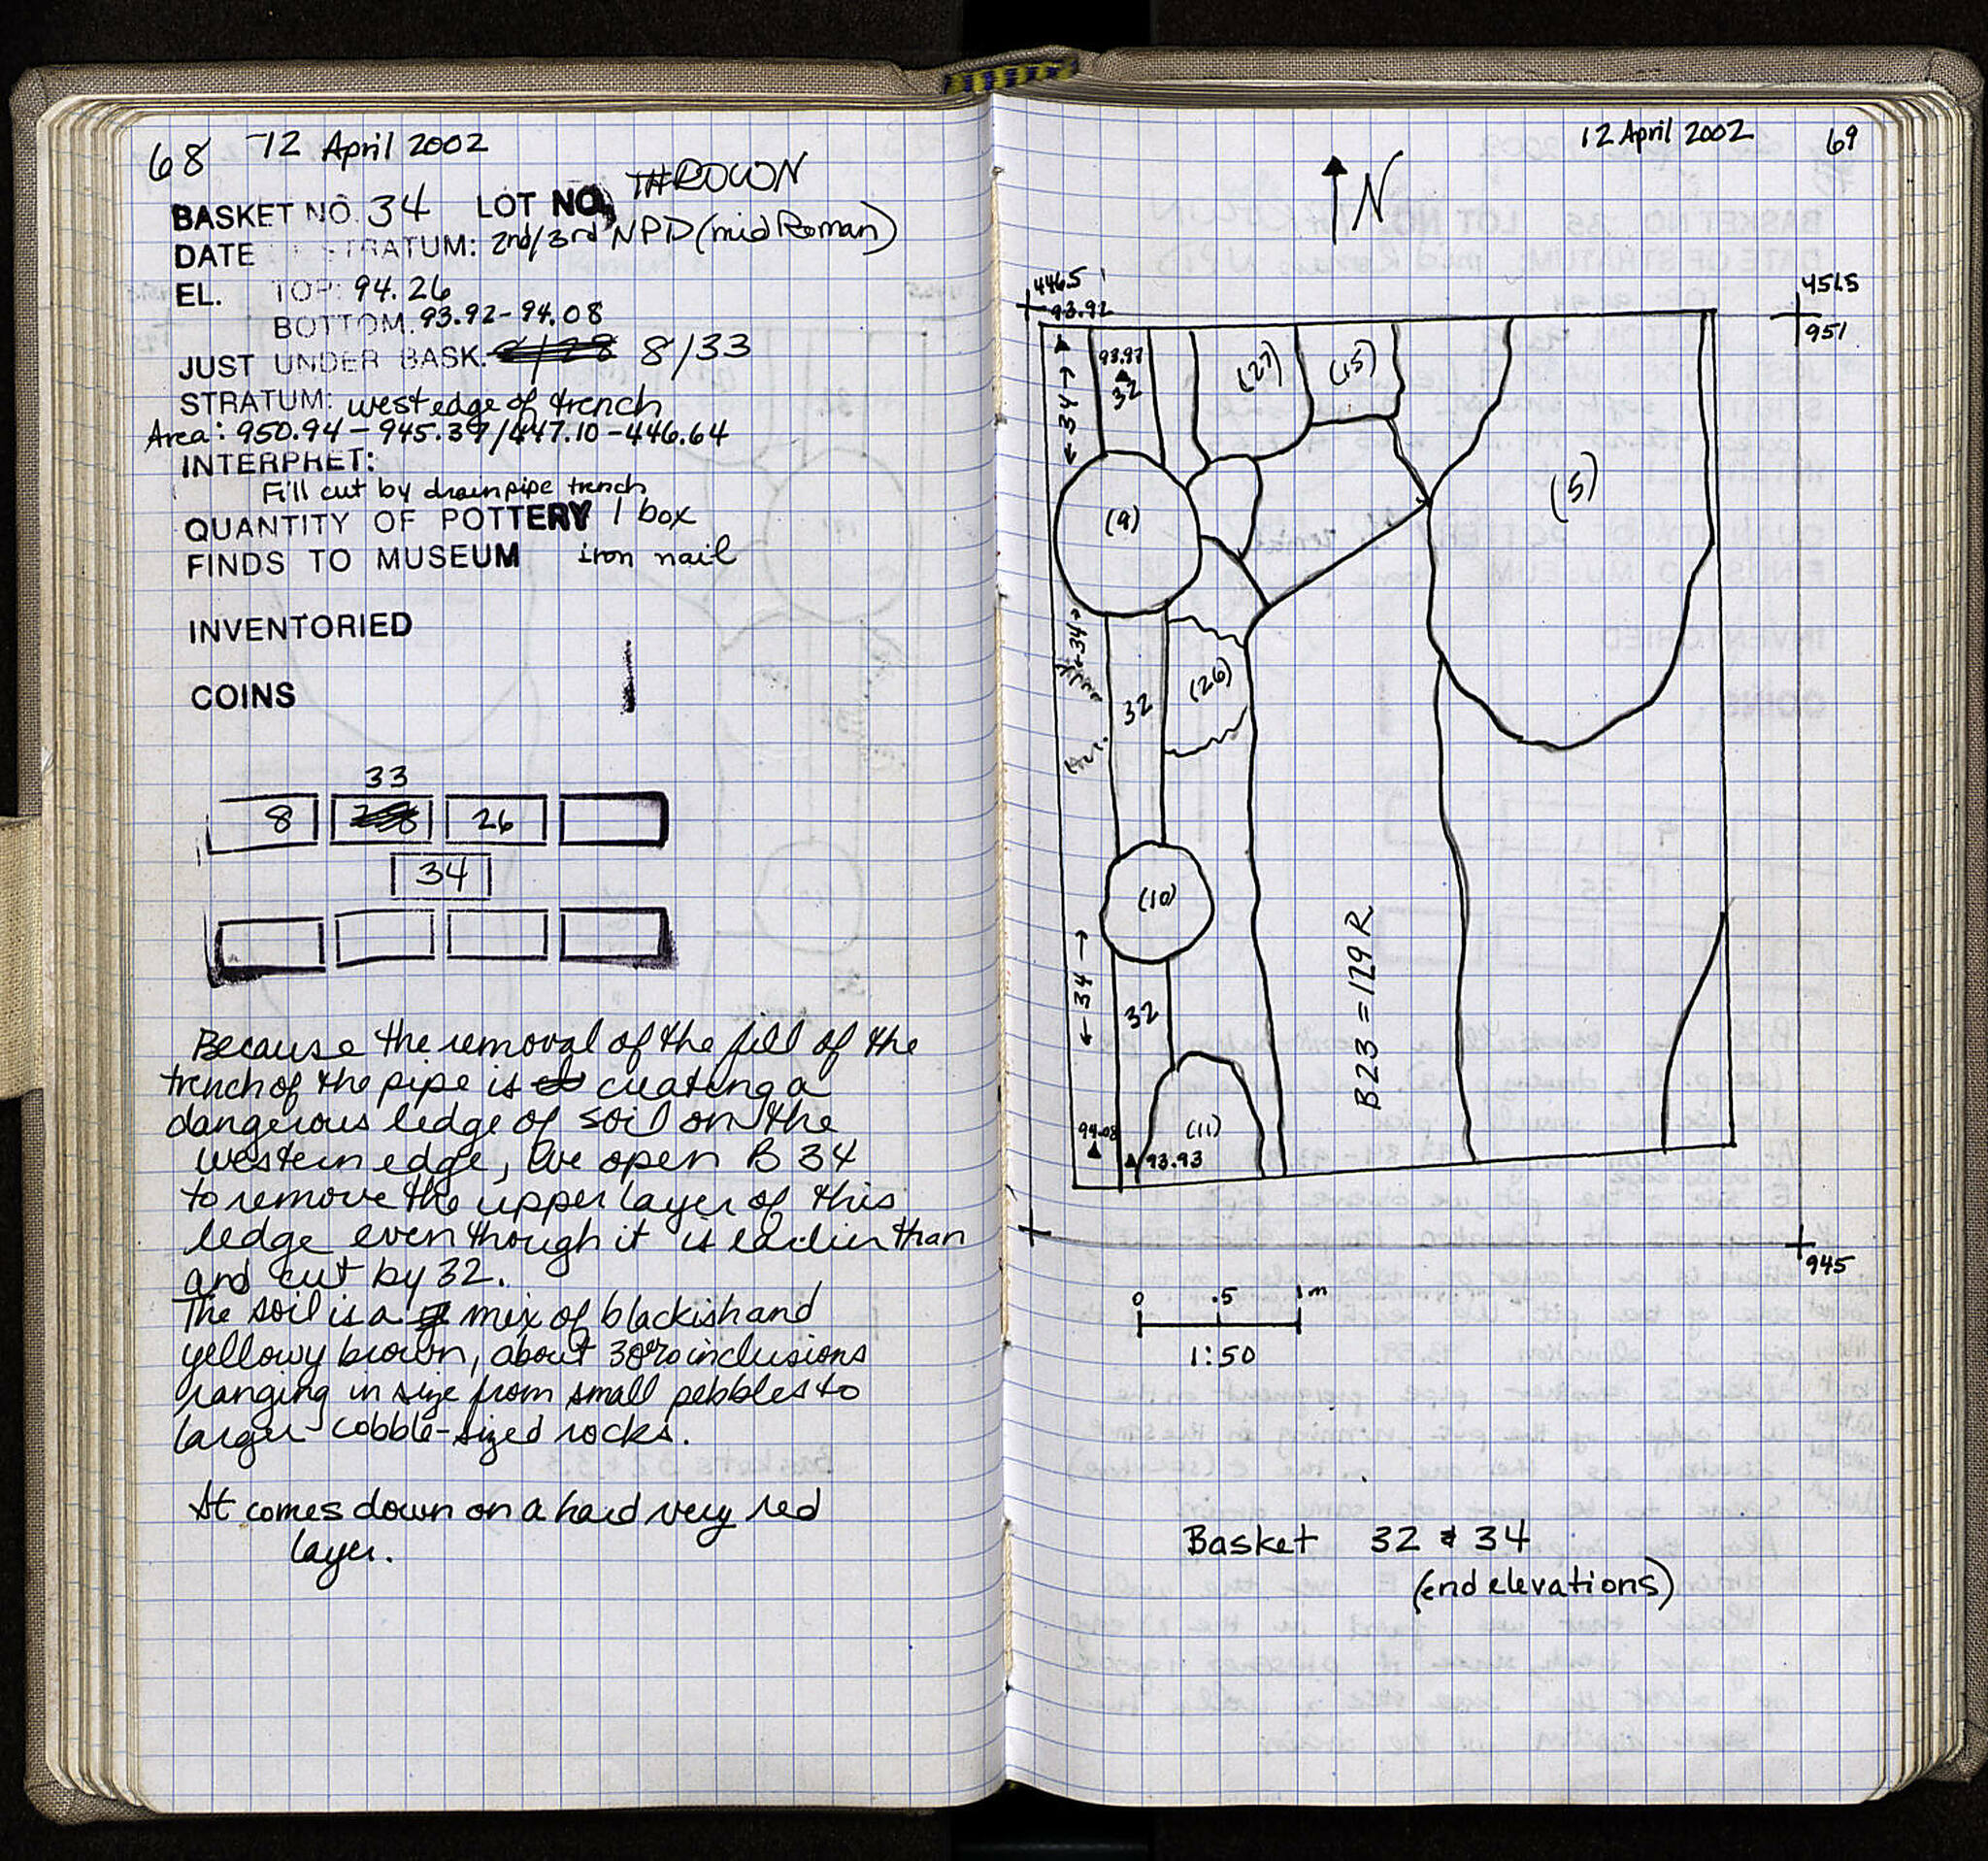 68 12 April 2002
THROWN
BASKET NO. 34 LOT NO,
DATE OF STRATUM: 2nd/3rd NPD (mid Roman)
EL. TOP: 94.26
BOTTOM. 93.92-94.08
JUST UNDER BASK. 8/33
STRATUM: west edge of trench
Area: 950.94-945.39/447.10-446.64
INTERPRET:
Fill cut by drainpipe trench
QUANTITY OF POTTERY 1 box
FINDS TO MUSEUM iron nail
INVENTORIED
COINS
33
8 26
34
Because the removal of the fill of the
trench of the pipe is creating a
dangerous ledge of soil on the
western edge, we open B 34
to remove the upper layer of this
ledge even though it is earlier than
and cut by 32.
The soil is a mix of blackish and
yellowy brown, about 30% inclusions
ranging in size from small pebbles to
larger cobble-sized rocks.
It comes down on a hard very red
layer.
12 April 2002 69
N
446.5
93.92
451.5
951
93.97
32
←34→
(27)
(15)
(5)
(9)
←34→
32
(26)
(10)
←34→
32
B23 = 179 R
94.08
93.93
(11)
945
0 .5 1m
1:50
Basket 32 & 34
(end elevations)